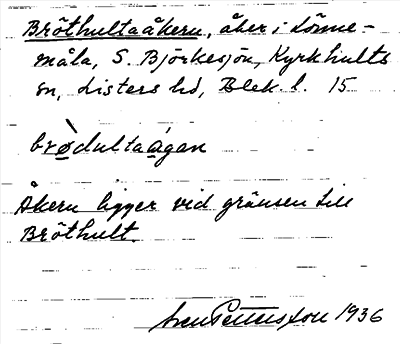 Bröthultaåkern, åker i Lönne-
måla, S. Björkesjön, Kyrkhults
sn, Listers hd, Blek. l. 15
brödultaågan
Åkern ligger vid gränsen till
Bröthult.
Sven Pettersson 1936